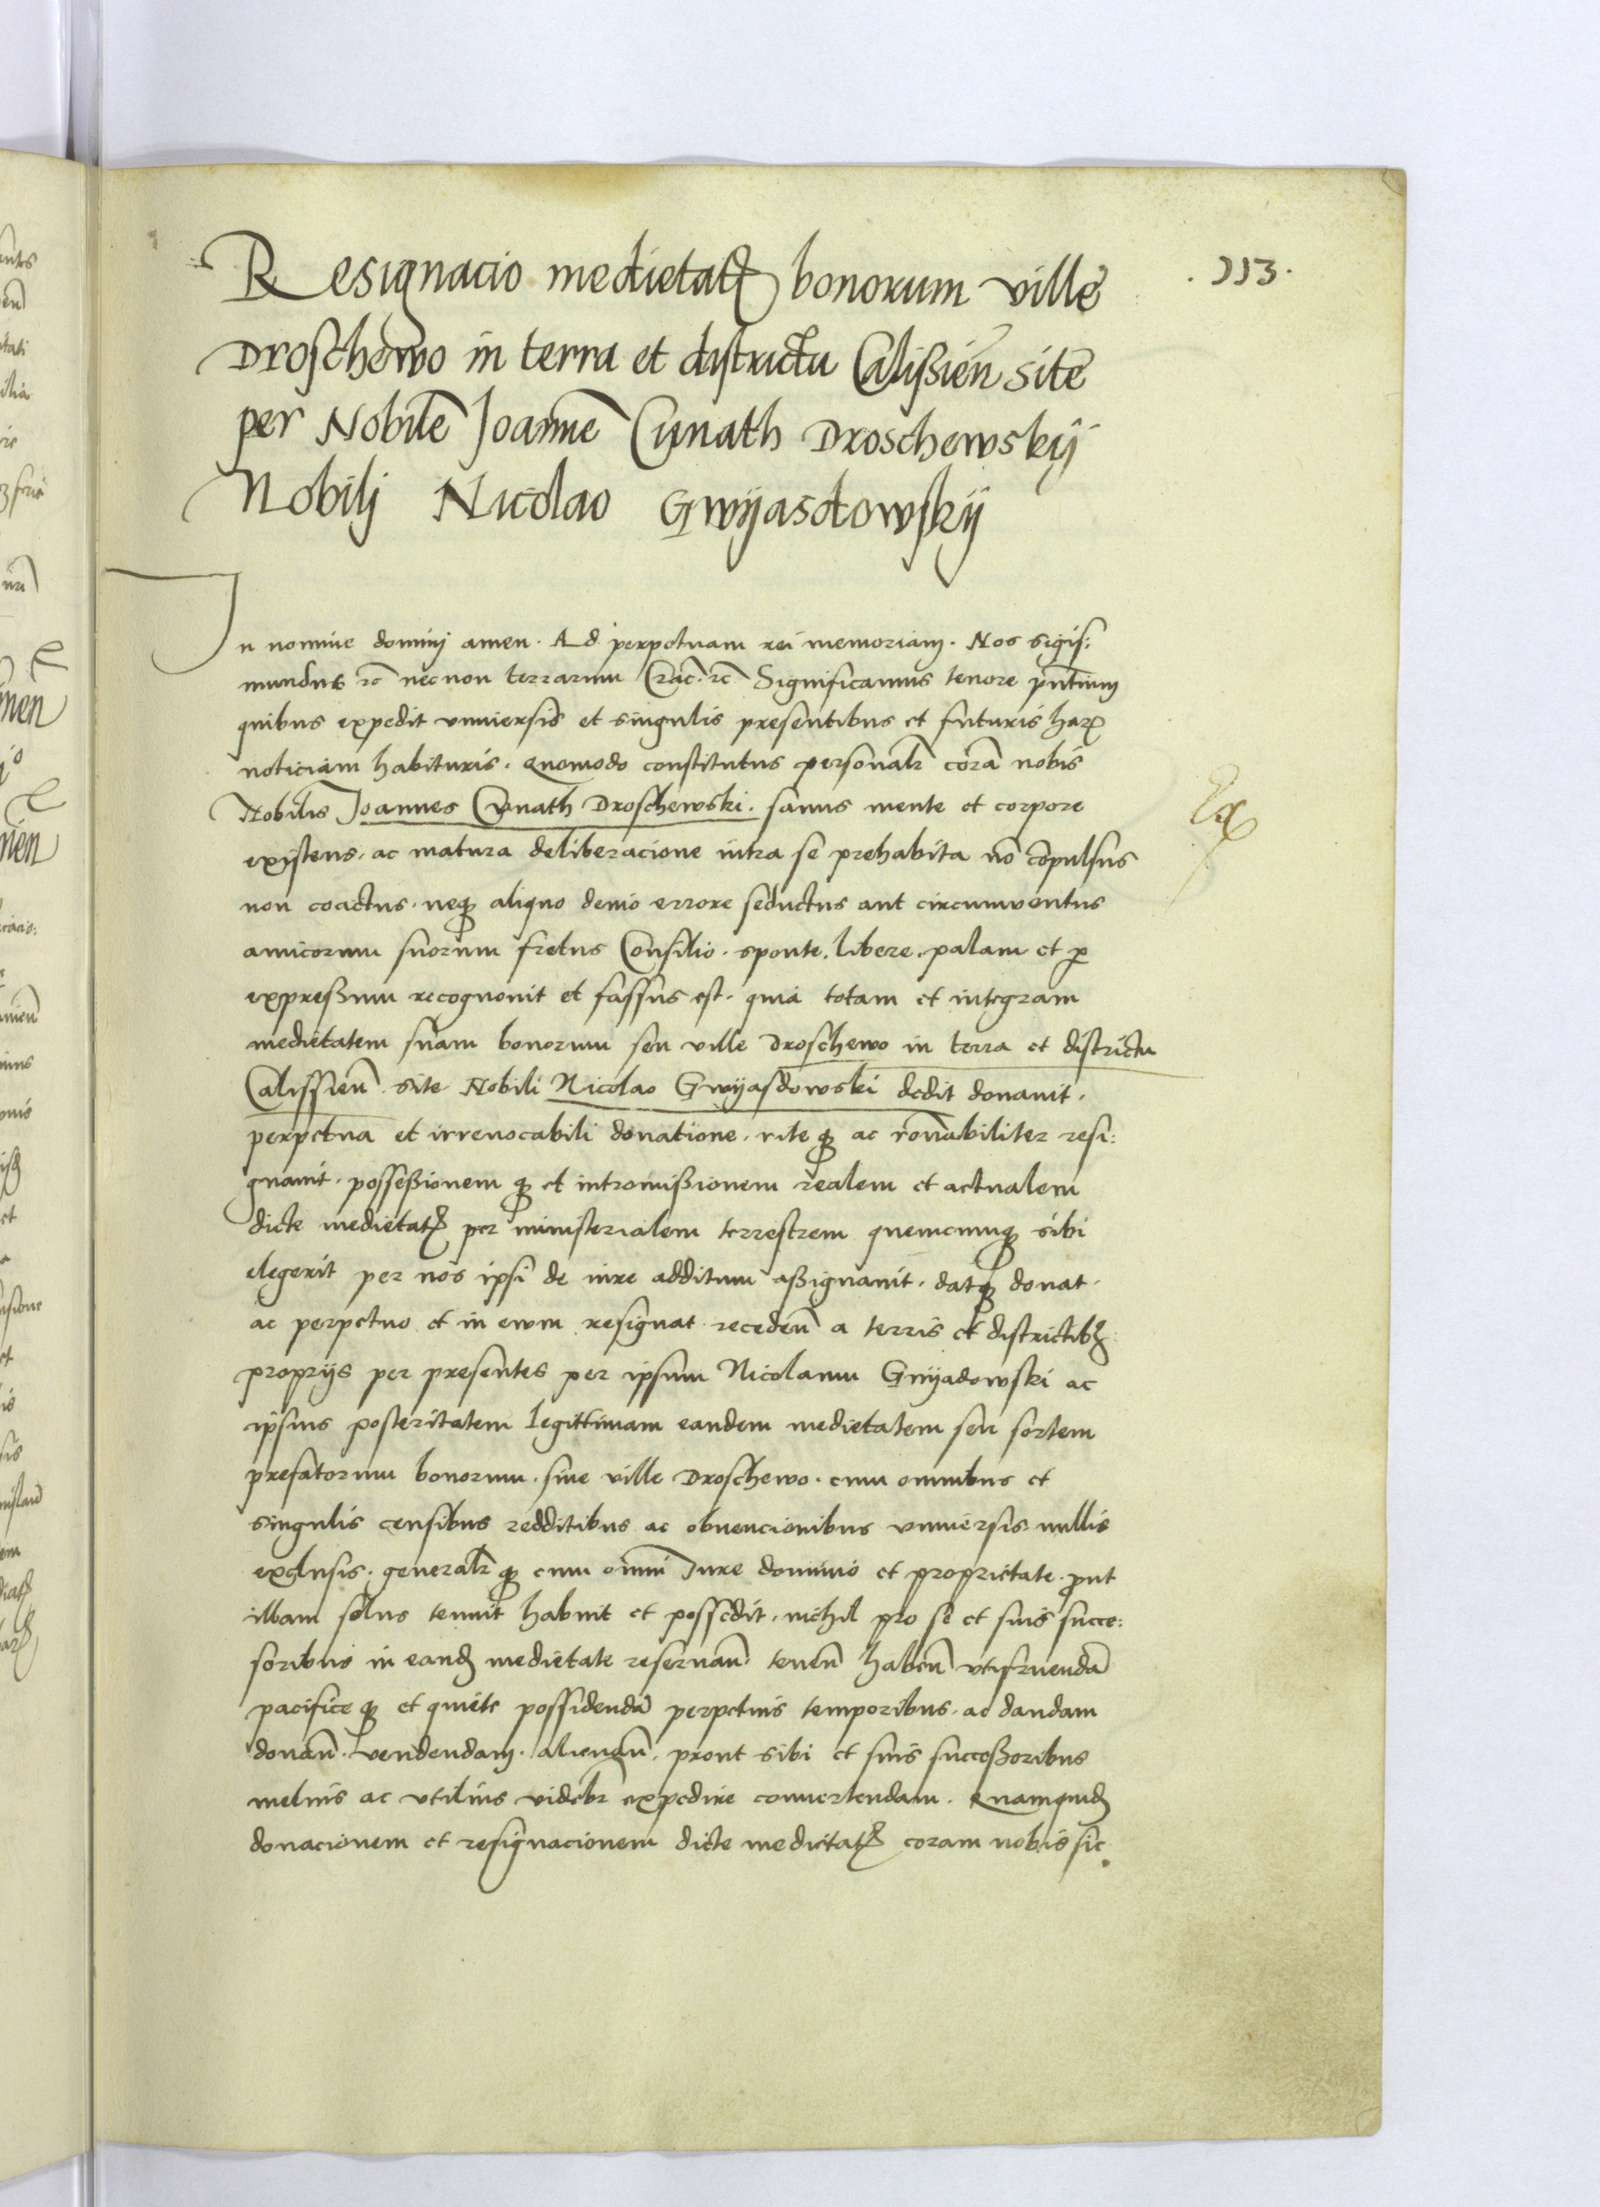 .113.
Resignacio medietatꝭ bonorum ville
Droschewo in terra et districtu Calissien̄ site
per Nobilē Joannē Cunath Droschewskij
Nobilj Nicolao Gwyasdowskij
In nomine dominj amen. Ad perpetuam rei memoriam. Nos Sigis:
mundus ꝛc̄ necnon terrarum Crac̄. ꝛc̄ Significamus tenore pn̄tium
quibus expedit vniuersis et singulis presentibus et futuris harꝝ
noticiam habituris. Quomodo constitutus personalr̄ corā nobis
Nobilis Joannes Cunath Droschewski. sanus mente et corpore
existens. ac matura deliberacione intra se prehabita nō cōpulsus
non coactus. neqꝫ aliquo deuio errore seductus aut circumuentus
amicorum suorum fretus Consilio. sponte. libere. palam et ꝑ
expressum recognouit et fassus est. quia totam et integram
medietatem suam bonorum seu ville Droschewo in terra et districtu
Calissien̄. site Nobili Nicolao Gwyasdowski dedit donauit.
perpetua et irreuocabili donatione. rite qꝫ ac ron̄abiliter resi:
gnauit. possessionem qꝫ et intromissionem realem et actualem
dicte medietatꝭ per ministerialem terrestrem quemcumqꝫ sibi
elegerit per nos ipsi de iure additum assignauit. datqꝫ donat.
ac perpetuo et in ewm resignat receden̄ a terris et districtibꝫ
proprijs per presentes per ipsum Nicolaum Gwyadowski ac
ipsius posteritatem legittimam eandem medietatem seu sortem
prefatorum bonorum. siue ville Droschewo. cum omnibus et
singulis censibus redditibus ac obuencionibus vniuersis nullis
exclusis. generalr̄ qꝫ cum om̄i Jure dominio et proprietate. ꝓut
illam solus tenuit habuit et possedit. nichil pro se et suis succe:
soribus in eandꝫ medietate reseruan̄. tenen̄ haben̄ vtifruendā
pacifice qꝫ et quiete possidendā perpetuis temporibus. ac dandam
donan̄. vendendam. alienan̄. prout sibi et suis successoribus
melius ac vtilius videbr̄ expedire conuertendam. Quamquidꝫ
donacionem et resignacionem dicte medietatꝭ coram nobis sic